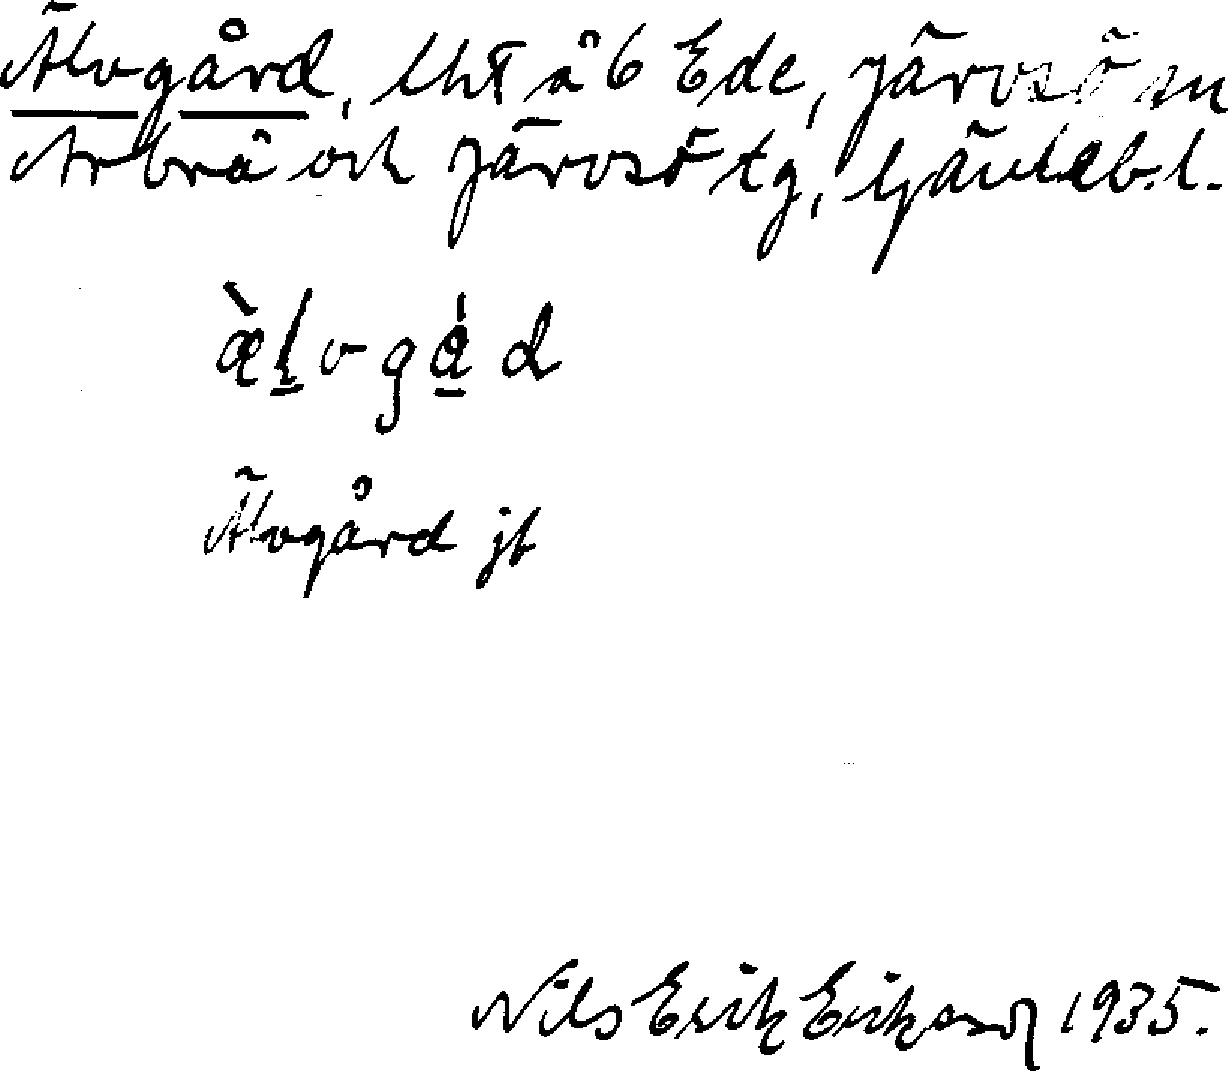 Älvgård, lht å 6 Ede, Järvsö sn
Arbrå och Järvsö tg, Gävleb. l.
æ̀lvgǻ̱d
Älvgård jb
Nils Erik Eriksson 1935.